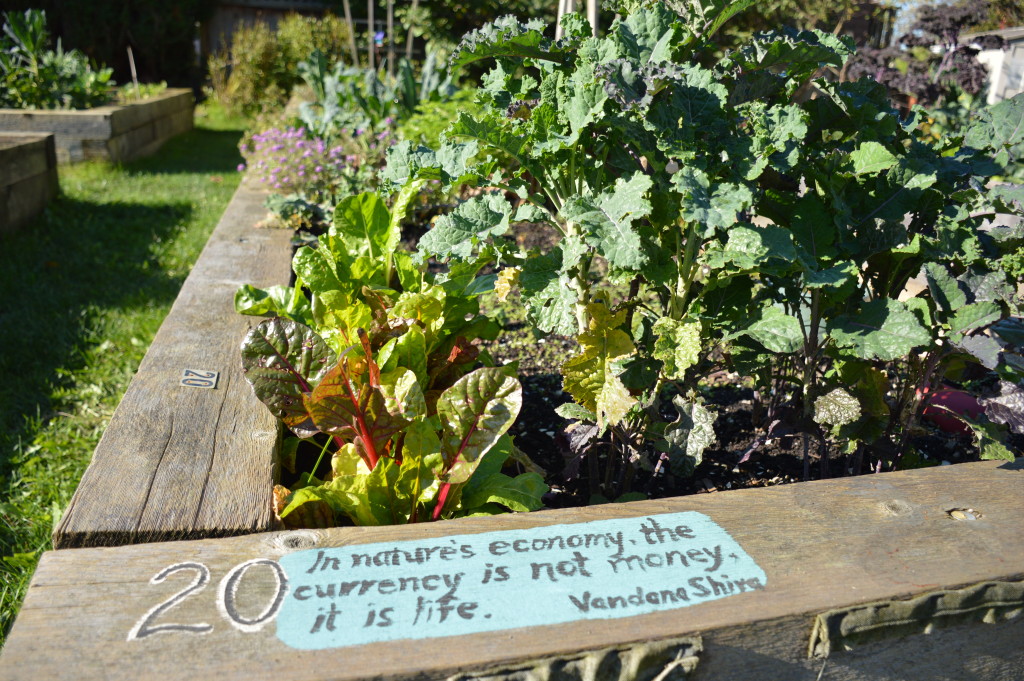 20
20
In nature's economy, the
currency is not money,
it is life. Vandana Shiva